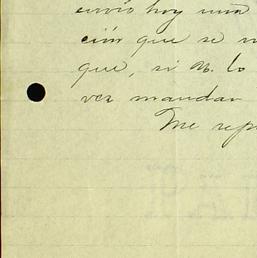 envío hoy una
ción que se
que, si N. lo
vez mandar
Me rep